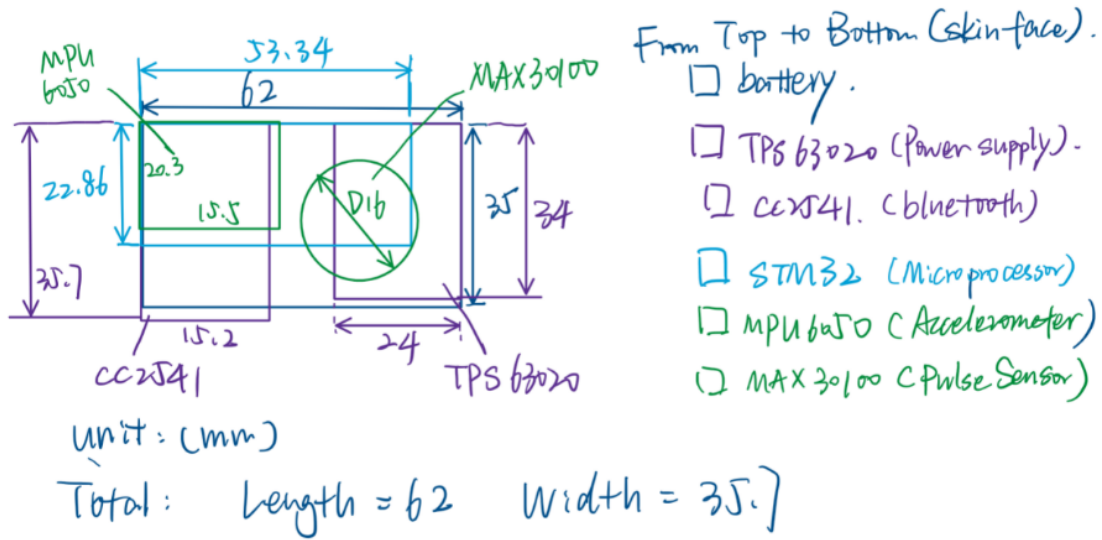 53.34
62
MPU
6050
MAX30100
20.3
22.86
15.5
D16
35
34
35.7
15.2
24
CC2541
TPS 63020
unit: (mm)
Total: Length = 62 Width = 35.7
From Top to Bottom (skinface).
battery.
TPS 63020 (Power supply).
CC2541. (bluetooth)
STM32 (Microprocessor)
MPU6050 (Accelerometer)
MAX30100 (Pulse Sensor)